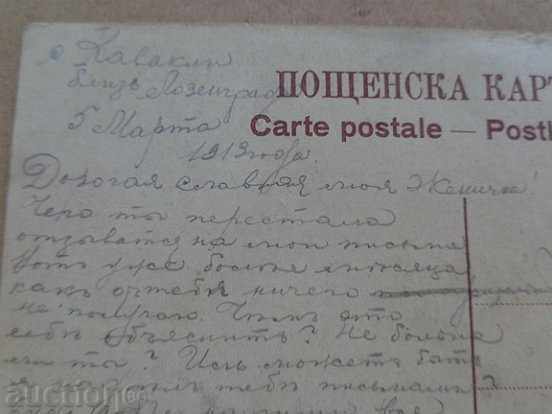 с. Кавакли
близъ Лозенград
5 Марта
1913 года.
ПОЩЕНСКА КАР
Carte postale — Post
Дорогая славная моя Женичка!
Чего ты перестала
отзыватся на мои письма
вотъ уже больше месяца
какъ отъ тебя ничего
не получаю. Чемъ это
себе объяснить? Не больна
ли ты? Иль можетъ быть
тебе письмами